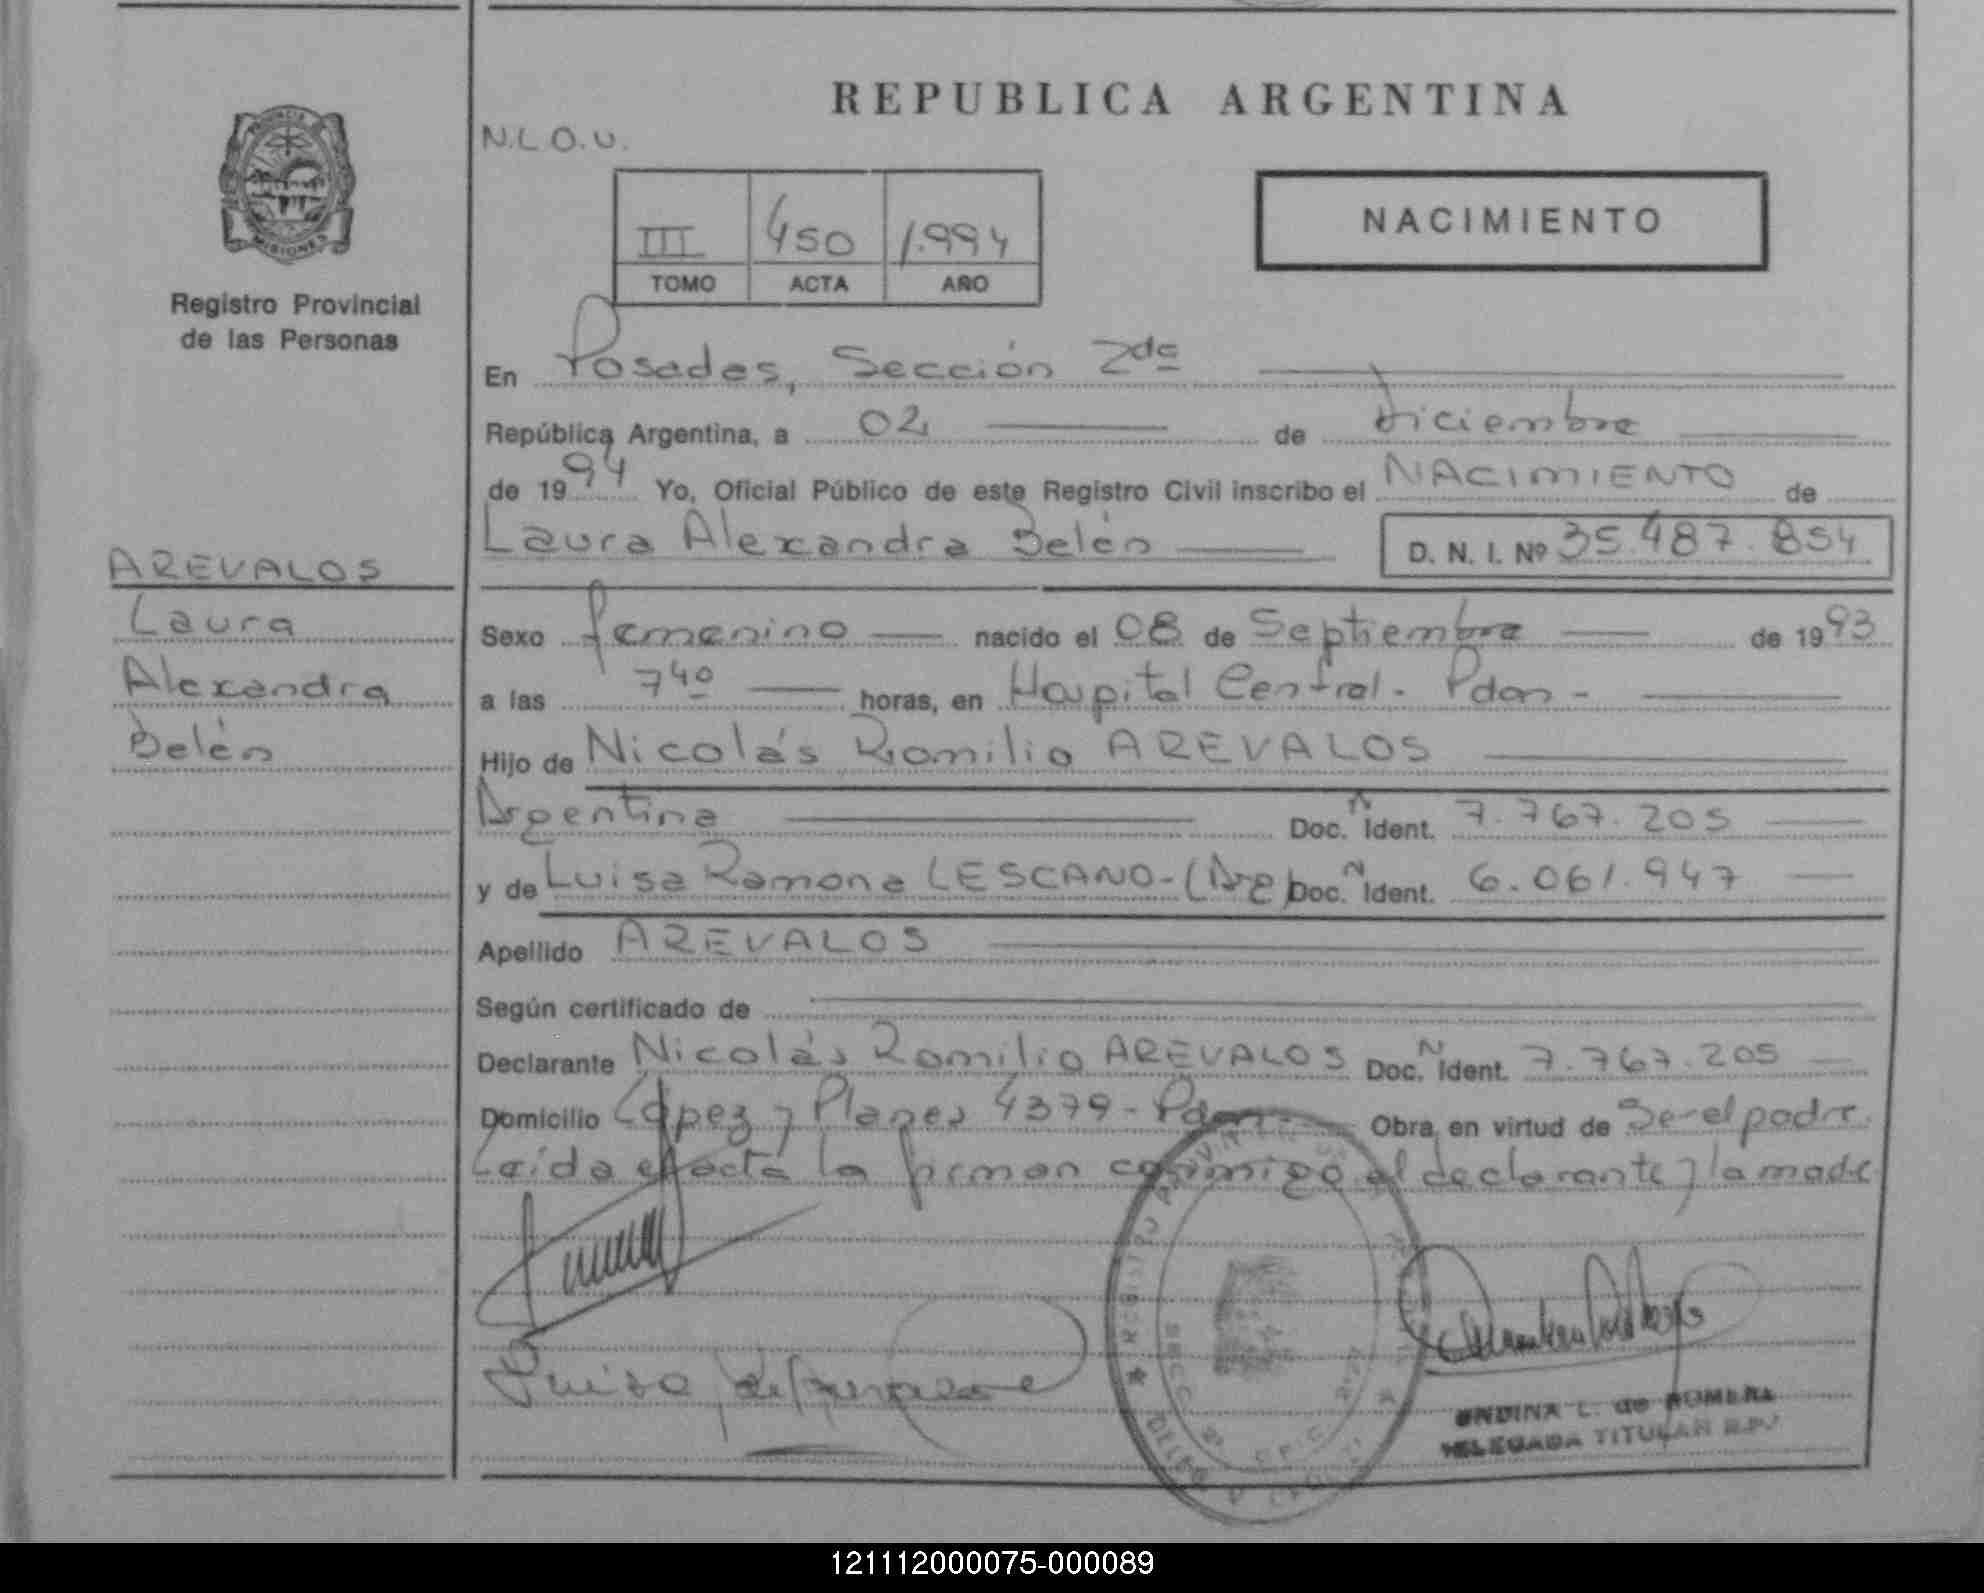 REPUBLICA ARGENTINA
N.L.O.U.
III 450 1.994
TOMO ACTA AÑO
NACIMIENTO
MISIONES
Registro Provincial
de las Personas
En Posadas, Sección 2da
República Argentina, a 02 de diciembre
de 1994 Yo, Oficial Público de este Registro Civil inscribo el NACIMIENTO de
Laura Alexandra Belén D. N. I. Nº 35.487.854
AREVALOS
Laura
Alexandra
Belén
Sexo femenino nacido el 08 de Septiembre de 1993
a las 7 40 horas, en Hospital Central - Pdas -
Hijo de Nicolás Romilio AREVALOS
Argentina Doc. N Ident. 7.767.205
y de Luisa Ramona LESCANO - (Arg) Doc. N Ident. 6.061.947
Apellido AREVALOS
Según certificado de
Declarante Nicolás Romilio AREVALOS Doc. N Ident. 7.767.205
Domicilio López y Planes 4379 - Pdas - Obra en virtud de Ser el padre.
Leída el acta la firman conmigo el declarante y la madre
Luisa
UNDINA L. de ROMERA
DELEGADA TITULAR R.P.
121112000075-000089